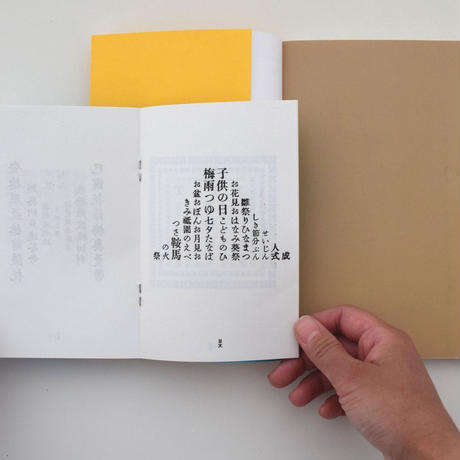 成
式
せいじん
しき節分ぶん
雛祭りひなまつ
お花見おはなみ葵祭
子供の日こどものひ
梅雨つゆ七夕たなば
お盆おぼんお月見お
きみ祇園のえべ
つさ鞍馬
の火
祭